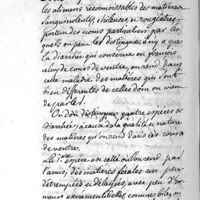 les alimens reconnoissables des matieres
sanguinolentes, chileuses, et rougeatres,
portent des noms particuliers par les
quels on peu les distinguer il ny a que
la diarrhée qui conserve en francois
celuy de cours de ventre, on rend dans
cette maladie des matieres qui sont
bien differentes de celles dont on vient
de parler.
On doit distinguer quatre especes de
diarrhée, a cause de la qualité et nature
des matieres qui on rend dans ces cours
de ventre.
La 1ere espece est celle ou l'on rend par
l'anus, des matieres fecales un peu
detrempées et delayées, avec peu d'hu
meurs excrementitielles comme bile, ou